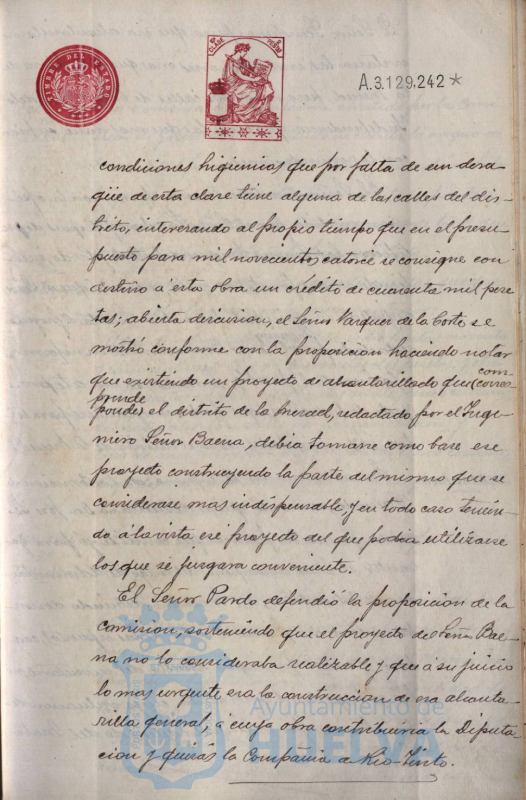 TIMBRE DEL ESTADO
CLASE
A.3.129,242*
condiciones higienicas que por falta de un desa-
güe de esta clase tiene alguna de las calles del dis-
trito, interesando al propio tiempo que en el presu-
puesto para mil novecientos catorce se consigne con
destino á esta obra un crédito de cuarenta mil pese-
tas; abierta discusion, el Señor Vazquez de la Corte se
mostró conforme con la proposicion haciendo notar
que existiendo un proyecto de alcantarillado que (corres-
com
prende
ponde) el distrito de la Merced, redactado por el Inge-
niero Señor Baena, debia tomarse como base ese
proyecto construyendo la parte del mismo que se
considerase mas indispensable, y en todo caso tenien-
do á la vista ese proyecto del que podia utilizarse
los que se juzgara conveniente.
El Señor Pardo defendió la proposicion de la
comision, sosteniendo que el proyecto del Señor Bae-
na no lo consideraba realizable y que á su juicio
lo mas urgente era la construccion de esa alcanta-
rilla general, á cuya obra contribuiria la Diputa-
cion y quizás la Compañia de Rio-Tinto.
Ayuntamiento de
HUELVA